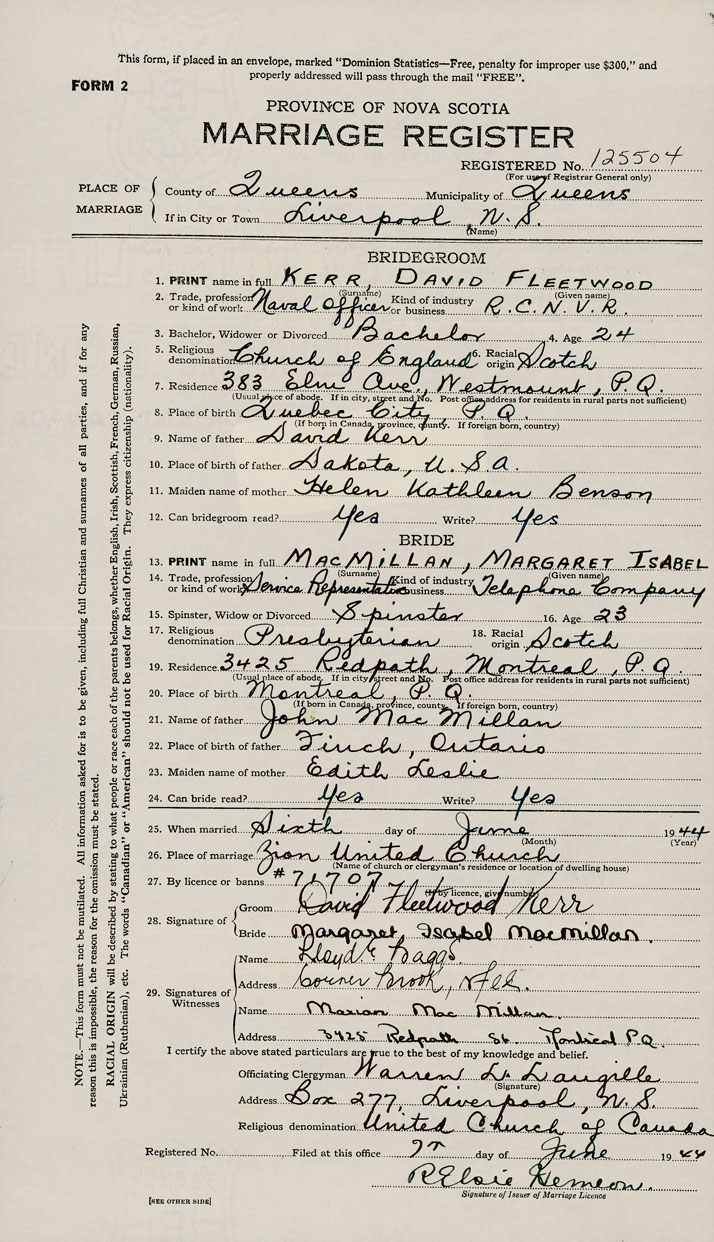 This form, if placed in an envelope, marked "Dominion Statistics—Free, penalty for improper use $300," and
properly addressed will pass through the mail "FREE".
FORM 2
PROVINCE OF NOVA SCOTIA
MARRIAGE REGISTER
REGISTERED No. 125504
(For use of Registrar General only)
PLACE OF MARRIAGE
County of Queens Municipality of Queens
If in City or Town Liverpool, N.S.
(Name)
BRIDEGROOM
1. PRINT name in full KERR, DAVID FLEETWOOD
(Surname) (Given name)
2. Trade, profession or kind of work Naval Officer Kind of industry or business R.C.N.V.R.
3. Bachelor, Widower or Divorced Bachelor 4. Age 24
5. Religious denomination Church of England 6. Racial origin Scotch
7. Residence 383 Elm Ave., Westmount, P.Q.
(Usual place of abode. If in city, street and No. Post office address for residents in rural parts not sufficient)
8. Place of birth Quebec City, P.Q.
(If born in Canada, province, county. If foreign born, country)
9. Name of father David Kerr
10. Place of birth of father Dakota, U.S.A.
11. Maiden name of mother Helen Kathleen Benson
12. Can bridegroom read? Yes Write? Yes
BRIDE
13. PRINT name in full MACMILLAN, MARGARET ISABEL
(Surname) (Given name)
14. Trade, profession or kind of work Service Representative Kind of industry or business Telephone Company
15. Spinster, Widow or Divorced Spinster 16. Age 23
17. Religious denomination Presbyterian 18. Racial origin Scotch
19. Residence 3425 Redpath, Montreal, P.Q.
(Usual place of abode. If in city, street and No. Post office address for residents in rural parts not sufficient)
20. Place of birth Montreal, P.Q.
(If born in Canada, province, county. If foreign born, country)
21. Name of father John MacMillan
22. Place of birth of father Finch, Ontario
23. Maiden name of mother Edith Leslie
24. Can bride read? Yes Write? Yes
25. When married Sixth day of June 1944
(Month) (Year)
26. Place of marriage Zion United Church
(Name of church or clergyman's residence or location of dwelling house)
27. By licence or banns #71707
(If by licence, give number)
28. Signature of
Groom David Fleetwood Kerr
Bride Margaret Isabel MacMillan.
29. Signatures of Witnesses
Name Lloyd Baggs
Address Corner Brook, Nfl.
Name Marian MacMillan
Address 3425 Redpath St. Montreal P.Q.
I certify the above stated particulars are true to the best of my knowledge and belief.
Officiating Clergyman Warren L.
(Signature)
Address Box 277, Liverpool, N.S.
Religious denomination United Church of Canada
Registered No. Filed at this office 9th day of June 1944
R Elsie Hemeon.
Signature of Issuer of Marriage Licence
[SEE OTHER SIDE]
NOTE.—This form must not be mutilated. All information asked for is to be given, including full Christian and surnames of all parties, and if for any
reason this is impossible, the reason for the omission must be stated.
RACIAL ORIGIN will be described by stating to what people or race each of the parents belongs, whether English, Irish, Scottish, French, German, Russian,
Ukrainian (Ruthenian), etc. The words "Canadian" or "American" should not be used for Racial Origin. They express citizenship (nationality).